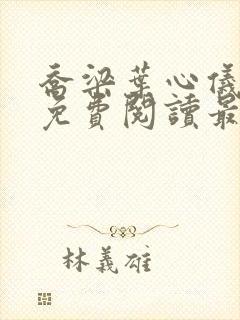 喬梁葉心儀
免費閱讀最
林義雄